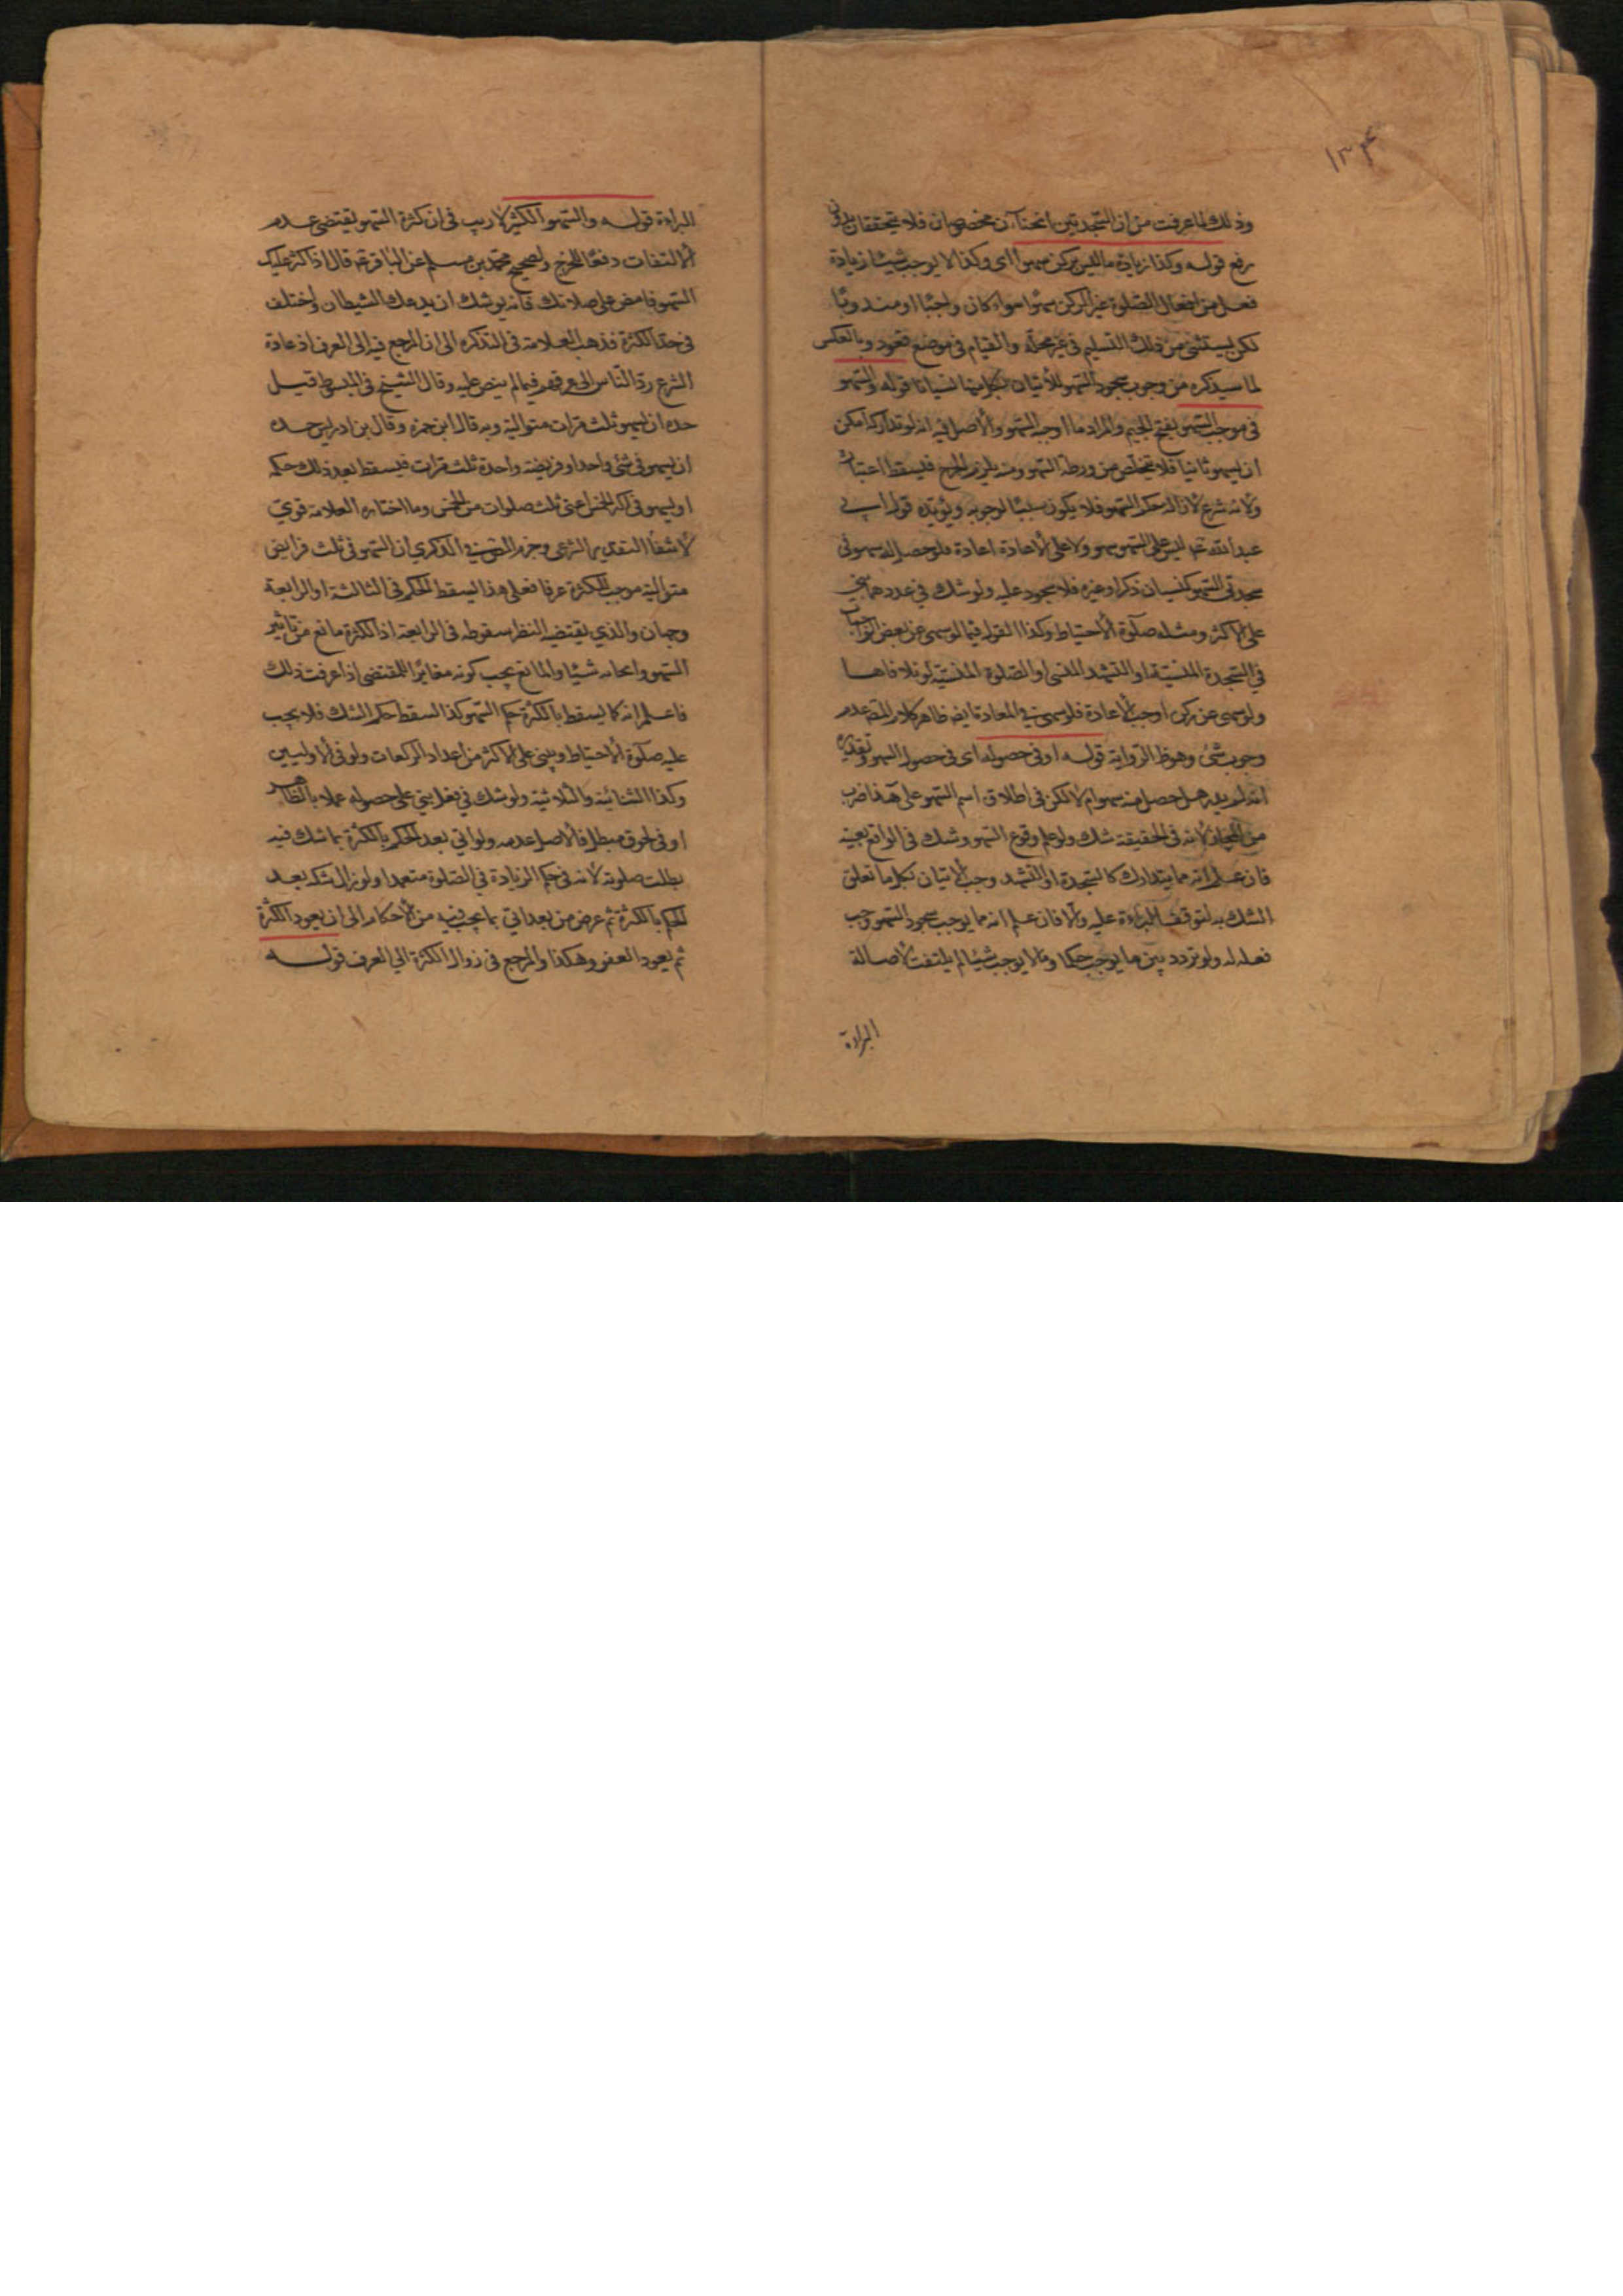 ١٣٤
وذلك لما عرفت من ان السجدتين انحناآن مخصوصان فلا يتحققان بدون
رفع قوله وكذا زيادة ما ليس بركن سهوا اى وكذا لا يوجب شيئا زيادة
فعل من افعال الصلوة غير الركن سهوا سواء كان واجبا او مندوبا
لكن يستثنى من ذلك التسليم فى غير محله والقيام فى موضع قعود وبالعكس
لما سيذكره من وجوب سجود السهو للاتيان بكل منها نسيانا قوله والسهو
فى موجب السهو بفتح الجيم والمراد ما اوجبه السهو والاصل فيه انه لو تداركه امكن
ان يسهو ثانيا فلا يتخلص من ورطة السهو ومنه يلزم الحرج فيسقط اعتباره
ولانه شرع لازالة حكم السهو فلا يكون سببا لوجوبه ويؤيده قول ابي
عبد الله عم ليس على السهو سهو ولا على الاعادة اعادة فلو حصل له سهو فى
سجدتى السهو كنسيان ذكر او غيره فلا سجود عليه ولو شك في عددهما بنى
على الاكثر ومثله صلوة الاحتياط وكذا القول فيما لو سهى عن بعض الواجبات
في السجدة المنسية او التشهد المنسى او الصلوة المنسية لو تلافاها
ولو سهى عن ركن اوجب الاعادة فلو سهى في المعادة ايضا ظاهر كلام المص عدم
وجوب شئ وهو ظ الرواية قوله او فى حصوله اى فى حصول السهو وتقديره
انه لم يدر هل حصل منه سهو ام لا لكن فى اطلاق اسم السهو على هذا ضرب
من المجاز لانه فى الحقيقة شك ولو علم وقوع السهو وشك فى الواقع بعينه
فان علم انه مما يتدارك كالسجدة او التشهد وجب الاتيان بكل ما تعلق
الشك به لتوقف البراءة عليه والا فان علم انه مما يوجب سجود السهو وجب
فعله له ولو تردد بين ما يوجب حكما وما لا يوجب شيئا لم يلتفت لاصالة
البراءة
البراءة قوله والسهو الكثير لا ريب فى ان كثرة السهو تقتضى عدم
الالتفات دفعا للحرج ولصحيح محمد بن مسلم عن الباقر عم قال اذا كثر عليك
السهو فامض على صلاتك فانه يوشك ان يدعك الشيطان واختلف
فى حد الكثرة فذهب العلامة فى التذكره الى ان المرجع فيه الى العرف اذ عادة
الشرع رد الناس الى عرفهم فيما لم ينص عليه وقال الشيخ فى المبسوط قيل
حده ان يسهو ثلث مرات متوالية وبه قال ابن حمزه وقال بن ادريس حده
ان يسهو فى شئ واحد او فريضة واحدة ثلث مرات فيسقط بعد ذلك حكمه
او يسهو فى اكثر الخمس اعنى ثلث صلوات من الخمس وما اختاره العلامة قوي
لانتفاء التقدير الشرعى وجزم المص في الذكري ان السهو فى ثلث فرايض
متوالية موجب للكثرة عرفا فعلى هذا يسقط الحكم فى الثالثة او الرابعة
وجهان والذي يقتضيه النظر سقوطه فى الرابعة اذ الكثرة مانع من تاثير
السهو وايجابه شيئا والمانع يجب كونه مغايرا للمقتضى اذا عرفت ذلك
فاعلم انه كما يسقط بالكثرة حكم السهو كذا يسقط حكم الشك فلا يجب
عليه صلوة الاحتياط ويبنى على الاكثر من اعداد الركعات ولو فى الاوليين
وكذا الثنائية والثلاثية ولو شك في فعل بنى على حصوله عملا بالظاهر
او فى لحوق مبطل فالاصل عدمه ولو اتي بعد الحكم بالكثرة بما شك فيه
بطلت صلوته لانه فى حكم الزيادة في الصلوة متعمدا ولو زال شكه بعد
الحكم بالكثرة ثم عرض من بعد اتي بما يجب فيه من الاحكام الى ان يعود الكثرة
ثم يعود العفو وهكذا والمرجع فى زوال الكثرة الي العرف قوله